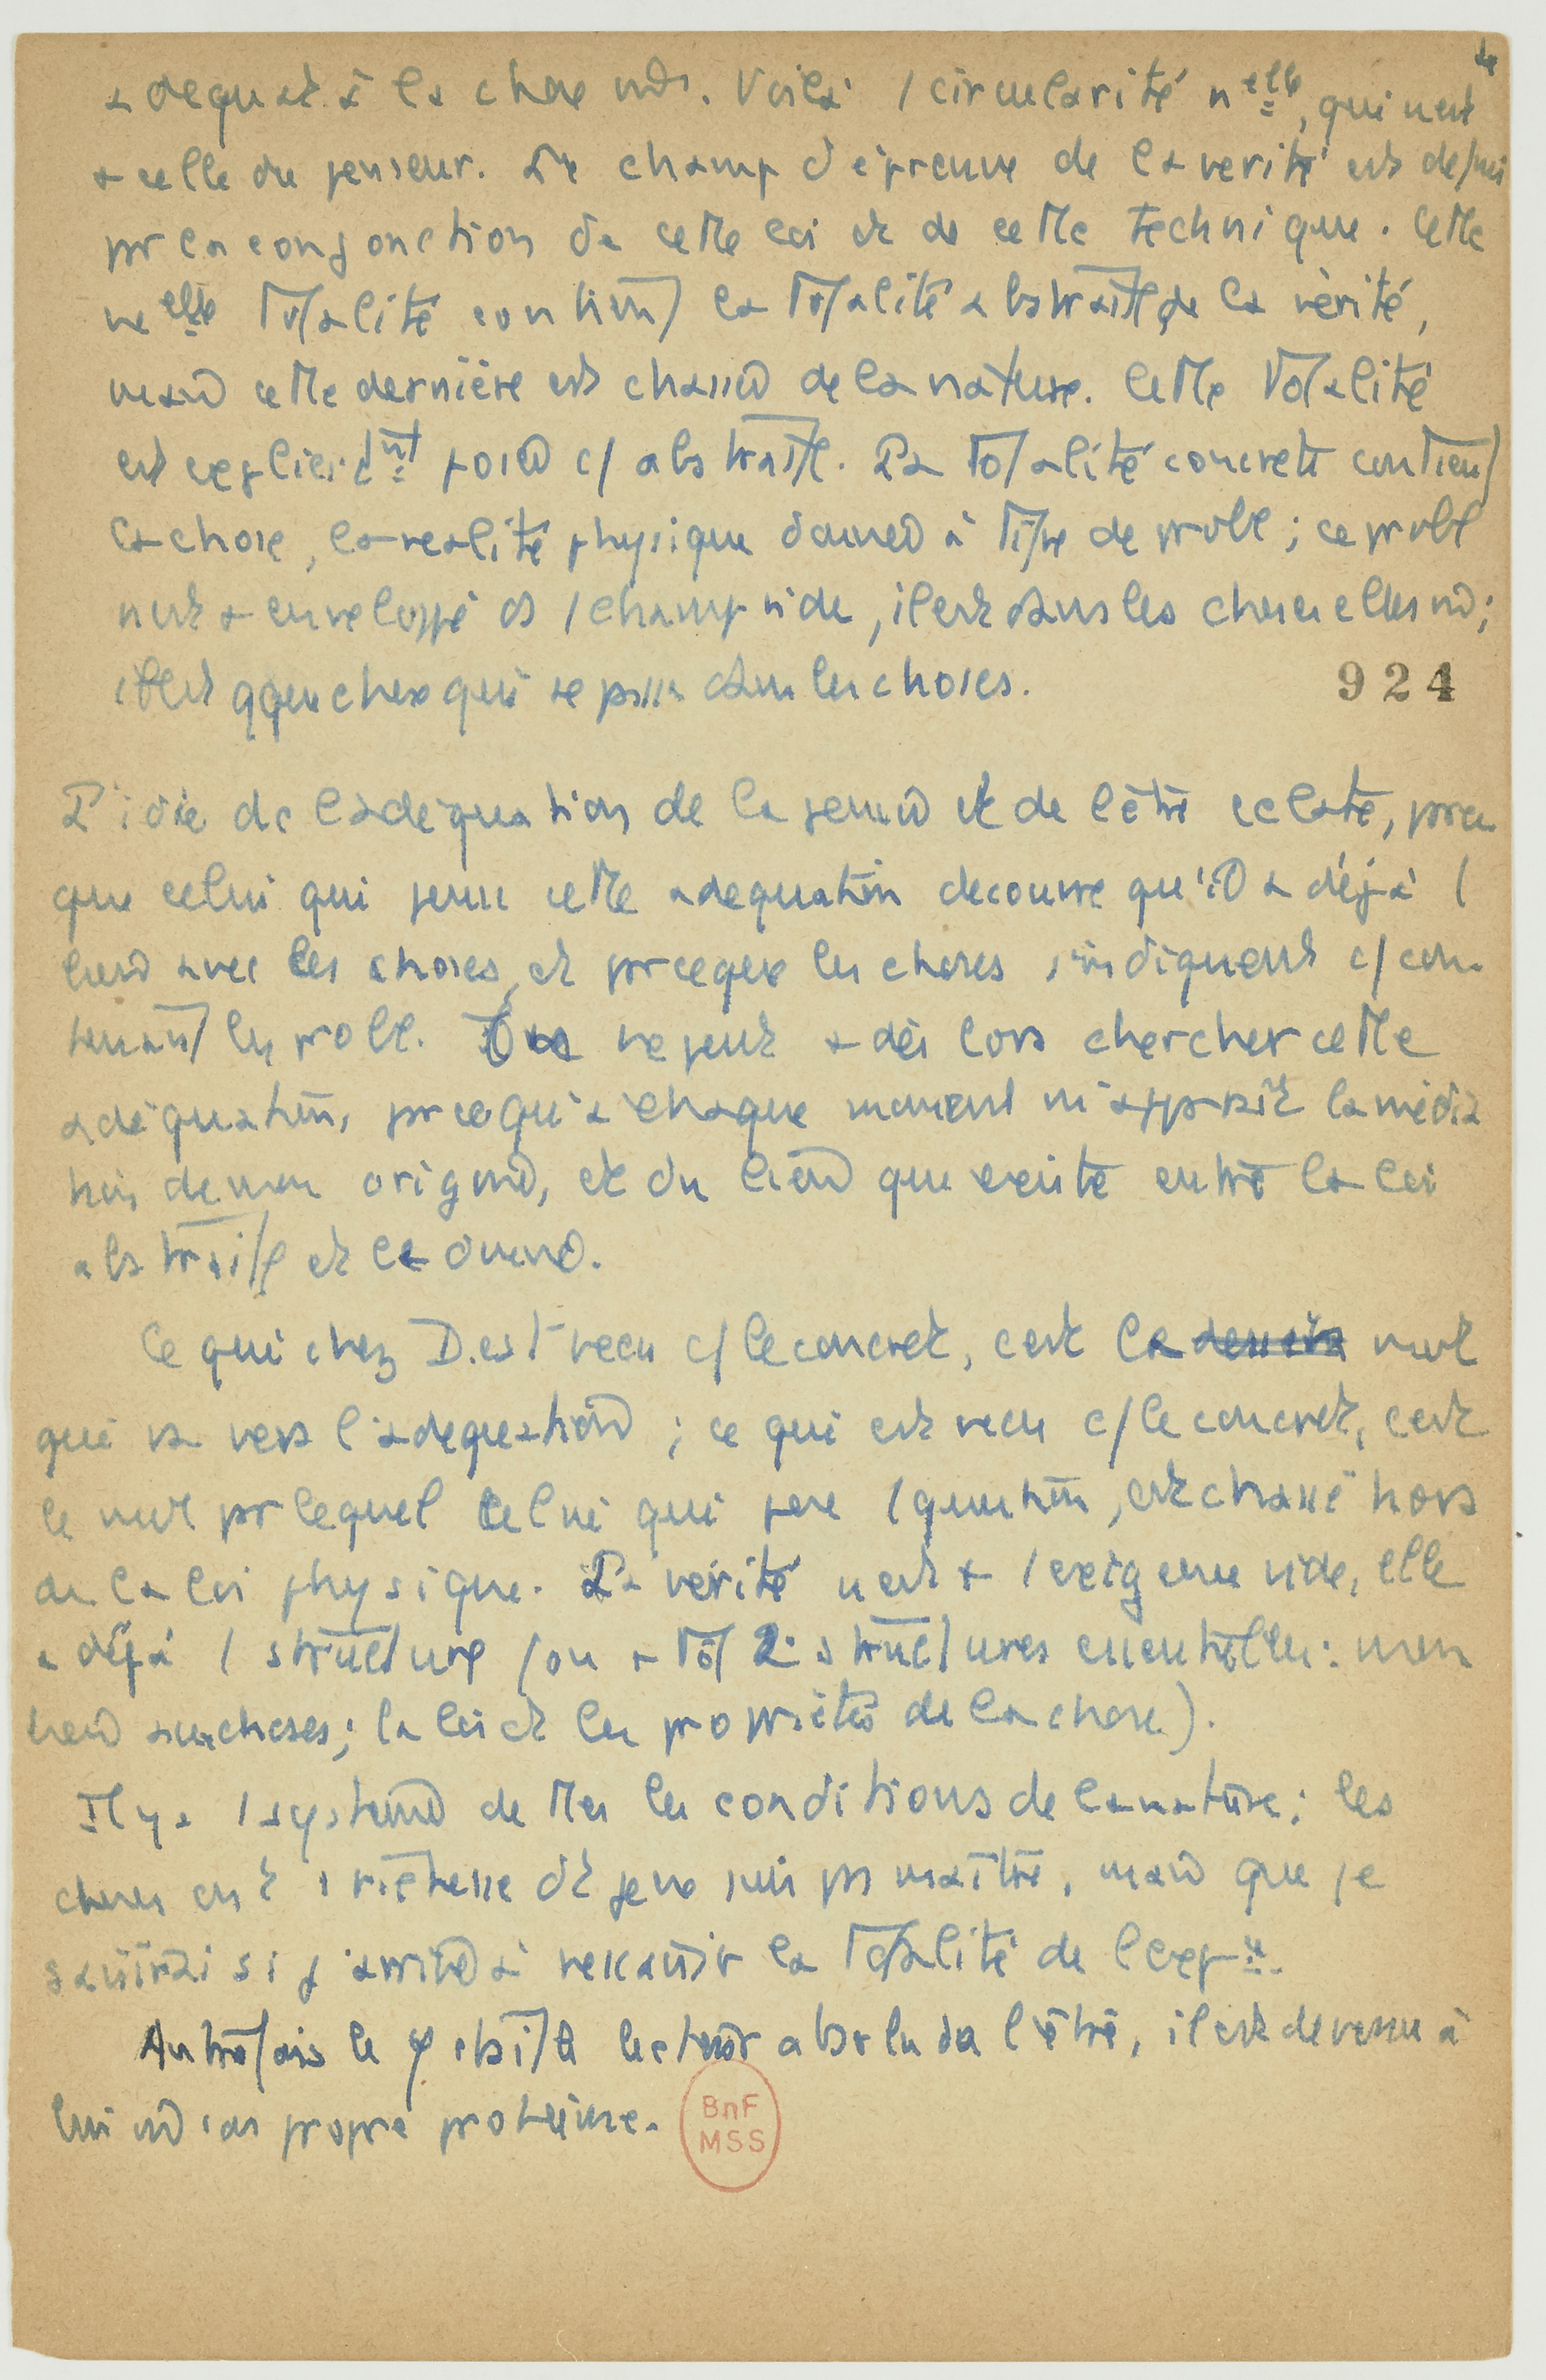 adequat à la chose md. Voilà / circularité n elle, qui nest
+ celle du penseur. Le champ d'épreuve de la verité est defini
pr la conjonction de cette loi et de cette technique. Cette
nelle totalité contient la totalité abstraite de la vérité,
quand cette dernière est chassée de la nature. Cette totalité
est explicitnt posée c/ abstraite. La totalité concrete contient
la chose, la realité physique donnée à titre de probl ; ce probl
nest + enveloppé ds / champ vide, il est dans les choses elles md ;
il est qque chose qui se passe dans les choses.
924
L'idée de l'adéquation de la pensée et de l'être eclate, parce
que celui qui pense cette adequation decouvre qu'il a déjà /
avec les choses, et prceque les choses s'indiquent c/ con-
tenant les probl. ne peut + dès lors chercher cette
adéquation, prcequ'à chaque moment m'apparaît la média
tion de mon origine, et du lien que existe entre la loi
abstraite et la
Ce qui chez D. est vecu c/ le concret, c'est le mvt
qui va vers l'adequation ; ce qui est vecu c/ le concret, c'est
le mvt pr lequel celui qui pose / question, est chassé hors
de la loi physique. La vérité nest + / exigence vide, elle
a déjà / structure (ou + tôt 2 structures essentielles : mon
aux choses ; la loi et les propriétés de la chose).
Il y a / système de ttes les conditions de la nature ; les
choses ont / richesse dt je ne suis pas maître, mais que je
saisirai si j'arrive à ressaisir la totalité de l'exp
Autrefois le φ était lecteur absolu de l'être, il est devenu à
lui md son propre problème.
BnF
MSS